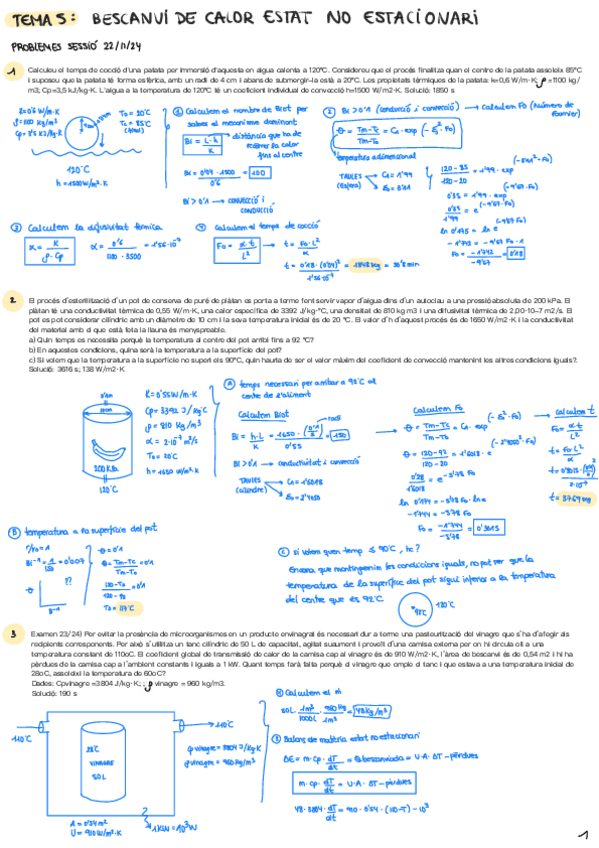 TEMA 5: BESCANVI DE CALOR ESTAT NO ESTACIONARI
PROBLEMES SESSIÓ 22/11/24
1 Calculeu el temps de cocció d'una patata per immersió d'aquesta en aigua calenta a 120ºC. Considereu que el procés finalitza quan el centre de la patata assoleix 85ºC
i suposeu que la patata té forma esfèrica, amb un radi de 4 cm i abans de submergir-la està a 20ºC. Les propietats tèrmiques de la patata: k=0,6 W/m·K, ρ=1100 kg/
m3; Cp=3,5 kJ/kg·K. L'aigua a la temperatura de 120ºC té un coeficient individual de convecció h=1500 W/m2·K. Solució: 1850 s
k=0'6 W/m·K
ρ=1100 kg/m³
To = 20°C
120°C
h=1500 W/m²·K
① Calculem el nombre de Biot per
saber el mecanisme dominant
Bi = L·h / K
distància que ha de
recórrer la calor
fins al centre
Bi = 0'04 · 1500 / 0'6 = 100
Bi > 0'1 → convecció i
conducció
② Bi > 0'1 (conducció i convecció) → Calculem Fo (Número de
Fourier)
θ = Tm-Tc / Tm-To = C1 · exp (-ξ1² · Fo)
temperatura adimensional
TAULES (esfera) → C1 = 1'99
120-85 / 120-20 = 1'99 · exp
0'35 = 1'99 · exp
0'35 / 1'99 = e
ln 0'175 = ln e
Fo = -1'742 / -9'67 = 0'18
③ Calculem la difusivitat tèrmica
α = K / ρ·Cp
α = 0'6 / 1100 · 3500 = 1'56·10⁻⁷
④ Calculem el temps de cocció
Fo = α·t / L²
t = Fo·L² / α
t = 0'18 · (0'04)² / 1'56·10⁻⁷ = 1848 seg = 30'8 min
2 El procés d'esterilització d'un pot de conserva de puré de plàtan es porta a terme fent servir vapor d'aigua dins d'un autoclau a una pressió absoluta de 200 kPa. El
plàtan té una conductivitat tèrmica de 0,55 W/m·K, una calor específica de 3392 J/kg·ºC, una densitat de 810 kg m3 i una difusivitat tèrmica de 2,00·10–7 m2/s. El
pot es pot considerar cilíndric amb un diàmetre de 10 cm i la seva temperatura inicial és de 20 ºC. El valor d'h d'aquest procés és de 1650 W/m2·K i la conductivitat
del material amb el que està feta la llauna és menyspreable.
a) Quin temps es necessita perquè la temperatura al centre del pot arribi fins a 92 ºC?
b) En aquestes condicions, quina serà la temperatura a la superfície del pot?
c) Si volem que la temperatura a la superfície no superi els 90ºC, quin hauria de ser el valor màxim del coeficient de convecció mantenint les altres condicions iguals?.
Solució: 3616 s; 138 W/m2·K
200 KPa
120°C
K = 0'55 W/m·K
Cp = 3392 J/kg°C
ρ = 810 kg/m³
α = 2·10⁻⁷ m²/s
To = 20°C
h = 1650 W/m²·K
Ⓐ temps necessari per arribar a 92°C al
centre de l'aliment
Calculem Biot
Bi = h·L / K
Bi > 0'1 → conductivitat i convecció
TAULES (cilindre) → C1 = 1'6018
Calculem Fo
θ = Tm-Tc / Tm-To = C1 · exp (-ξ² · Fo)
θ = 120-92 / 120-20
0'28 / 1'6018
Fo = 0'3015
Calculem t
Fo = α·t / L²
t = Fo·L² / α
t = 3769 seg
Ⓑ temperatura a la superfície del pot
r/ro = 1
Bi⁻¹ = 1/150 = 0'007
θ
Bi⁻¹
??
θ = 0'1
To = 117°C
Ⓒ si volem que temp ≤ 90°C, h c ?
Encara que mantinguem les condicions iguals, no pot ser que la
temperatura de la superfície del pot sigui inferior a la temperatura
del centre que és 92°C
92°C
120°C
3 Examen 23/24) Per evitar la presència de microorganismes en un producte envinagrat és necessari dur a terme una pasteurització del vinagre que s'ha d'afegir als
recipients corresponents. Per això s'utilitza un tanc cilíndric de 50 L de capacitat, agitat suaument i proveït d'una camisa externa per on hi circula oli a una
temperatura constant de 110oC. El coeficient global de transmissió de calor de la camisa cap al vinagre és de 910 W/m2·K, l'àrea de bescanvi és de 0,54 m2 i hi ha
pèrdues de la camisa cap a l'ambient constants i iguals a 1 kW. Quant temps farà falta perquè el vinagre que omple el tanc i que estava a una temperatura inicial de
28oC, assoleixi la temperatura de 60oC?
Dades: Cpvinagre =3804 J/kg·K; ; ρ vinagre = 960 kg/m3.
Solució: 190 s
110°C
110°C
28°C
VINAGRE
50L
A = 0'54 m²
1KW = 10³ W
Cp vinagre = 3804 J/kg·K
ρ vinagre = 960 kg/m³
① Balanç de matèria estat no estacionari
m · Cp · dT/dt = U·A·ΔT - pèrdues
48 · 3804 · dT/dt = 910 · 0'54 · (110-T) - 10³
1